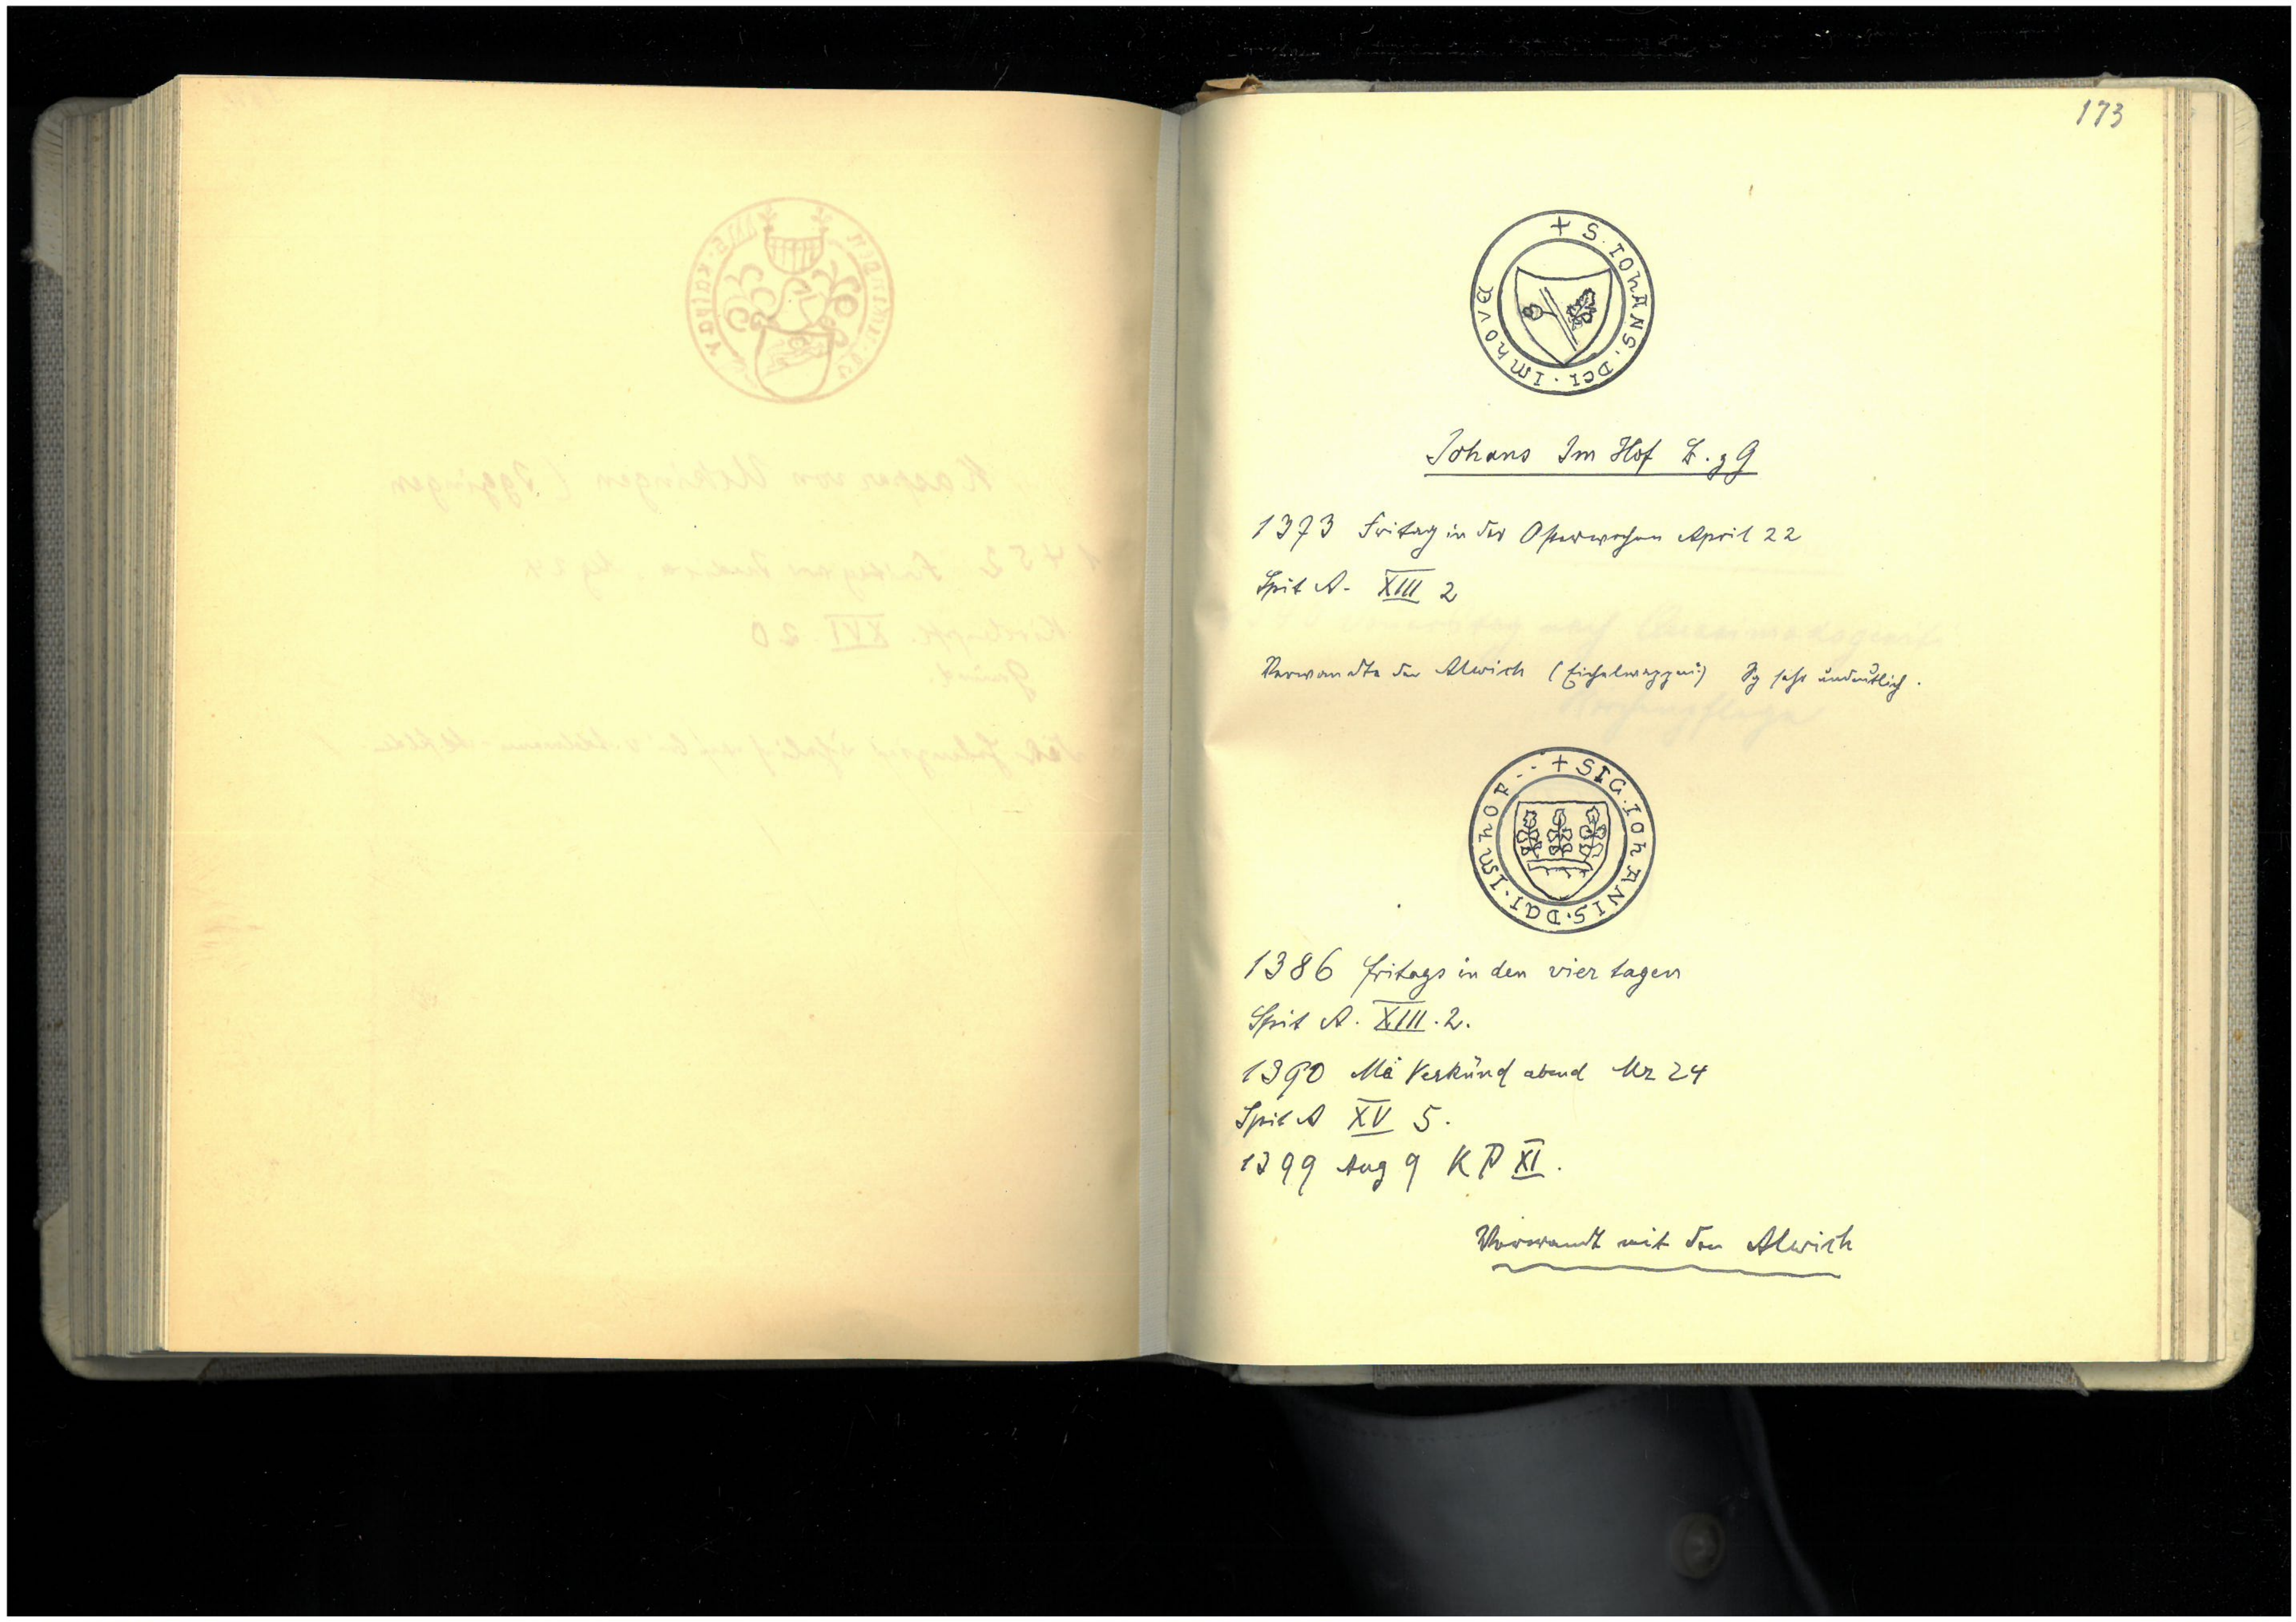 173
+ S. IOHANS. DCI. IMHOVE
Johans Im Hof B. z G
1373 Fritag in der Osterwochen April 22
Spit A. XIII 2
Verwandte der Alwich (Eichelwappen) Sg sehr undeutlich.
+ SIG. IOHANIS. DCI. IMHOF
1386 fritags in den vier tagen
Spit A. XIII. 2.
1390 Mä Verkünd abend Mz 24
Spit A XV 5.
1399 Aug 9 K P XI.
Verwandt mit den Alwich